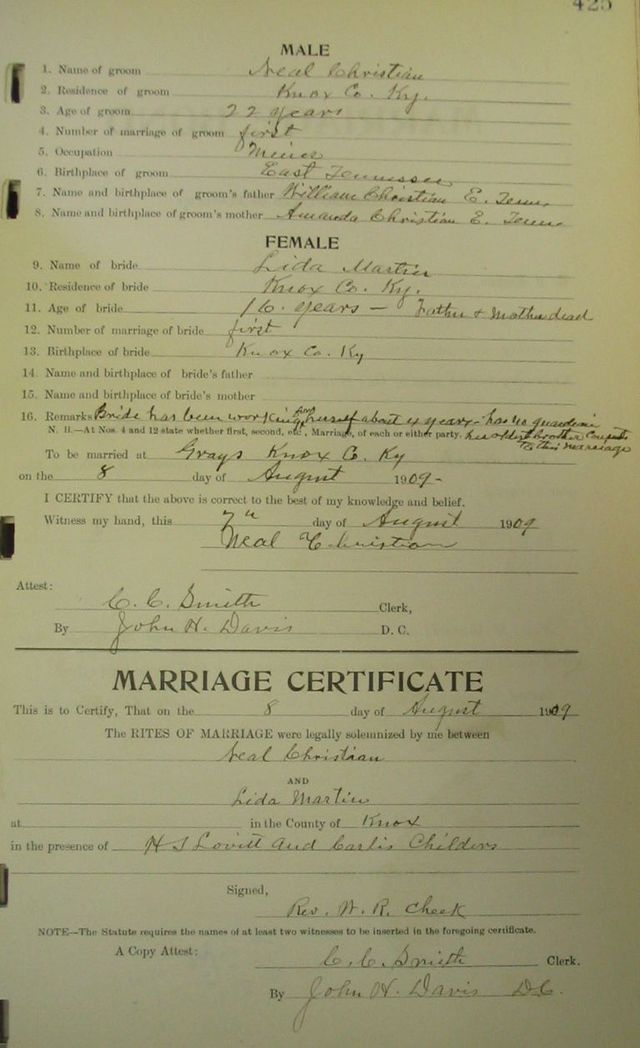 425
MALE
1. Name of groom Neal Christian
2. Residence of groom Knox Co. Ky.
3. Age of groom 22 years
4. Number of marriage of groom first
5. Occupation Miner
6. Birthplace of groom East Tennessee
7. Name and birthplace of groom's father William Christian E. Tenn
8. Name and birthplace of groom's mother Amanda Christian E. Tenn
FEMALE
9. Name of bride Lida Martin
10. Residence of bride Knox Co. Ky.
11. Age of bride 16 years — Father & Mother dead
12. Number of marriage of bride first
13. Birthplace of bride Knox Co. Ky
14. Name and birthplace of bride's father
15. Name and birthplace of bride's mother
16. Remarks Bride has been working for herself about 4 years - has no guardian
N. B.—At Nos. 4 and 12 state whether first, second, etc., Marriage, of each or either party. her oldest brother Consents
to this marriage
To be married at Grays Knox Co. Ky
on the 8 day of August 1909-
I CERTIFY that the above is correct to the best of my knowledge and belief.
Witness my hand, this 7th day of August 1909
Neal Christian
Attest:
C. C. Smith Clerk,
By John H. Davis D. C.
MARRIAGE CERTIFICATE
This is to Certify, That on the 8 day of August 1909
The RITES OF MARRIAGE were legally solemnized by me between
Neal Christian
AND
Lida Martin
at in the County of Knox
in the presence of H I Lovitt and Carlis Childers
Signed,
Rev. W. R. Cheek
NOTE—The Statute requires the names of at least two witnesses to be inserted in the foregoing certificate.
A Copy Attest: C. C. Smith Clerk.
By John H. Davis D.C.